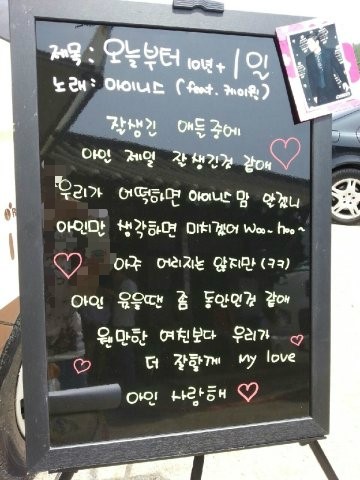 제목 : 오늘부터 10년 + 1일
노래 : 아이니스 (feat. 케이윌)
잘생긴 애들중에
아인 제일 잘생긴것 같애
우리가 어떡하면 아이니스 맘 알겠니
아인만 생각하면 미치겠어 Woo~ hoo~
아주 어리지는 않지만 (ㅋㅋ)
아인 웃을땐 좀 동안인것 같애
웬만한 여친보다 우리가
더 잘할게 My love
아인 사랑해